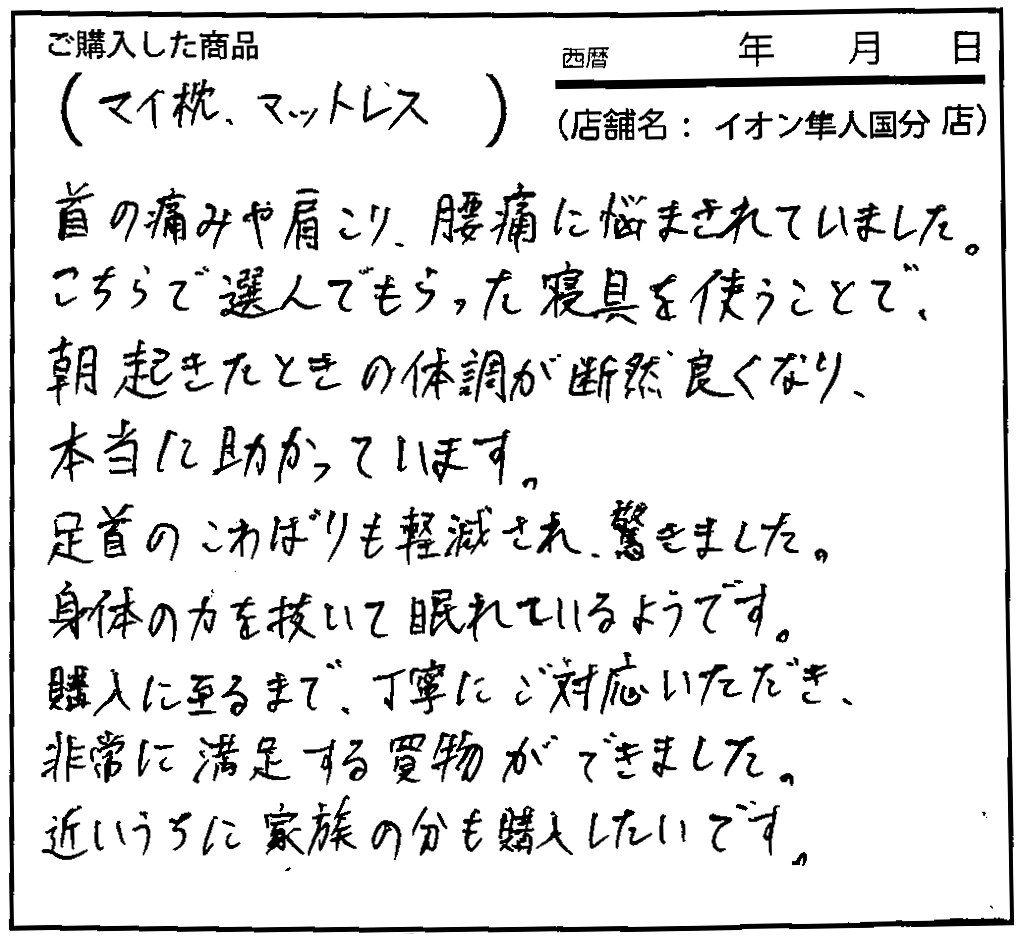 ご購入した商品
西暦 年 月 日
(マイ枕、マットレス)
(店舗名：イオン隼人国分店)
首の痛みや肩こり、腰痛に悩まされていました。
こちらで選んでもらった寝具を使うことで、
朝起きたときの体調が断然良くなり、
本当に助かっています。
足首のこわばりも軽減され、驚きました。
身体の力を抜いて眠れているようです。
購入に至るまで、丁寧にご対応いただき、
非常に満足する買物ができました。
近いうちに家族の分も購入したいです。